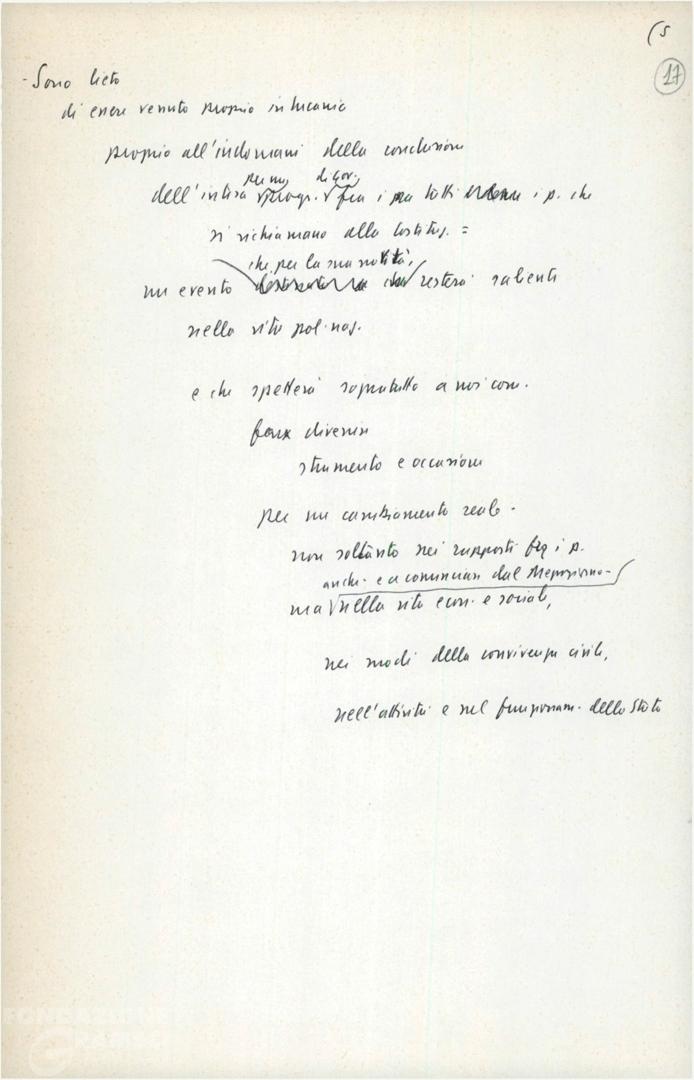 (5
17
- Sono lieto
di essere venuto proprio in Lucania
proprio all'indomani della conclusione
per un di gov.
dell'intesa progr. fra i tutti i p. che
si richiamano alla Costituz. =
che per la sua novità,
un evento resterà saliente
nella vita pol. naz.
e che spetterà sopratutto a noi com.
far divenire
strumento e occasione
per un cambiamento reale -
non soltanto nei rapporti fra i p.
anche - e a cominciare dal Mezzogiorno -
ma nella vita econ. e sociale,
nei modi della convivenza civile,
nell'attività e nel funzionam. dello Stato
FONDAZIONE
GRAMSCI